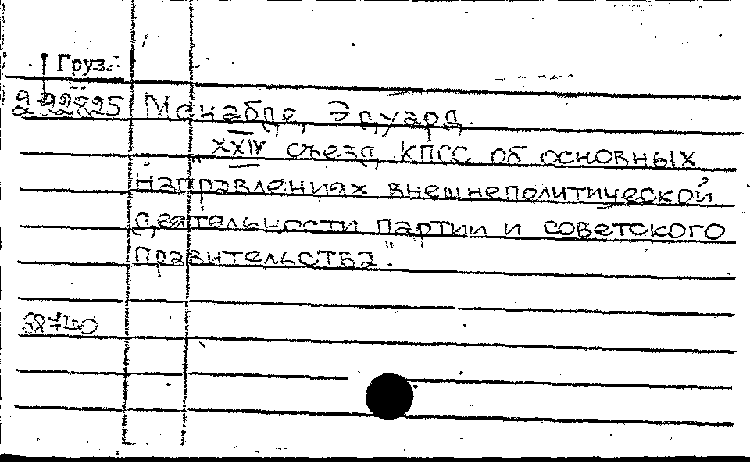 Груз.
Менабде, Эдуард.
XXIV съезд КПСС об основных
направлениях внешнеполитической
деятельности партии и советского
правительства".
58740